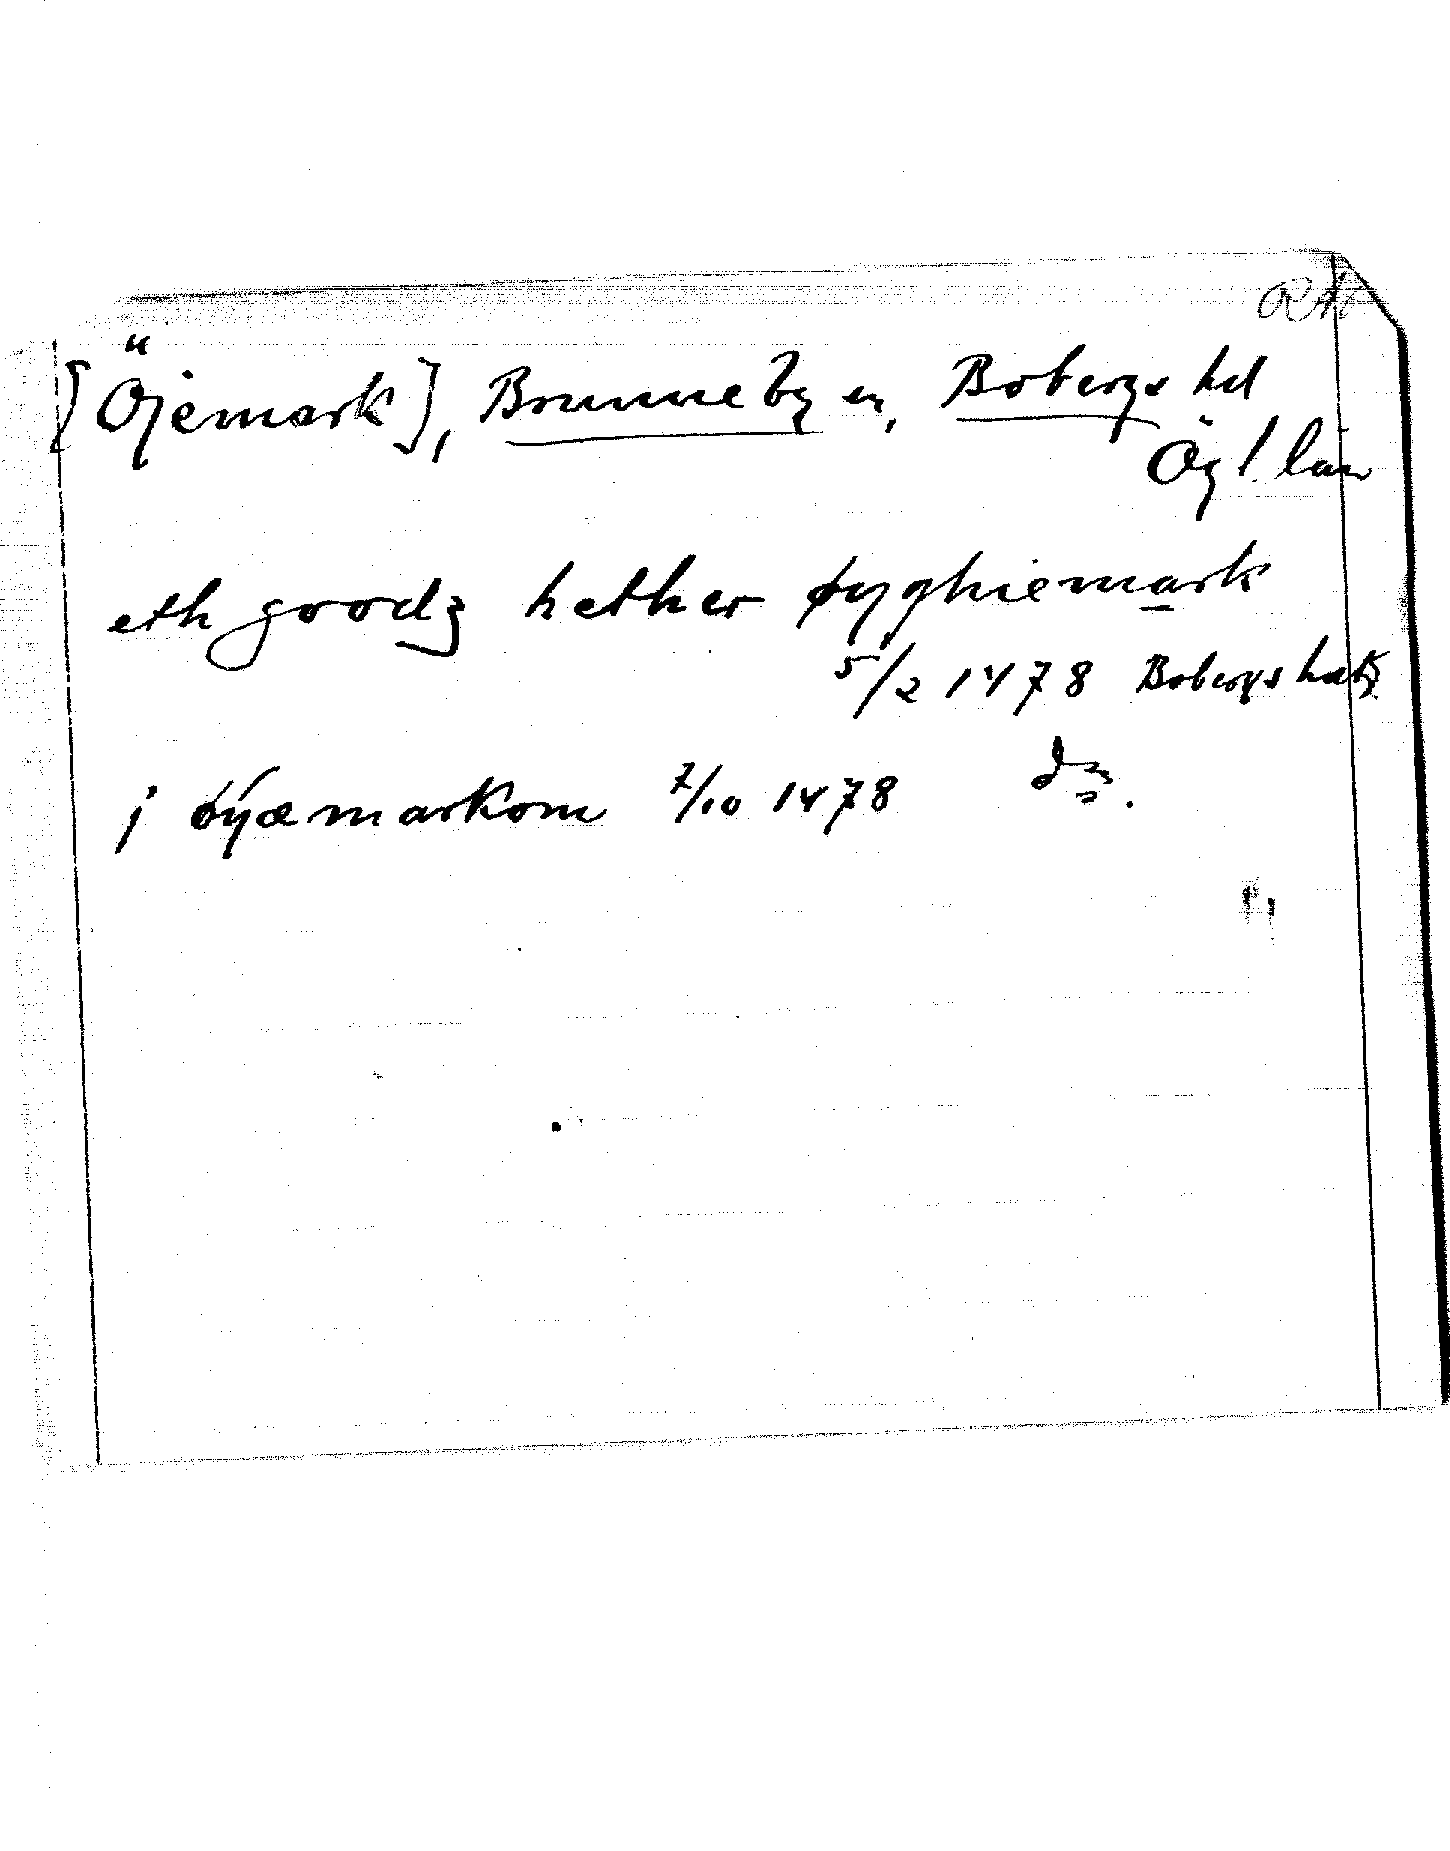 [Öjemark], Brunneby sn, Bobergs hd
Ögl. län
eth goodz hether øyghiemark
5/2 1478 Bobergs hdb
j øyæmarkom 7/10 1478 d:o.